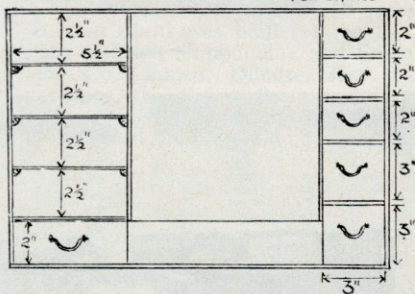 2½"
5½"
2½"
2½"
2½"
2"
2"
2"
2"
3"
3"
3"